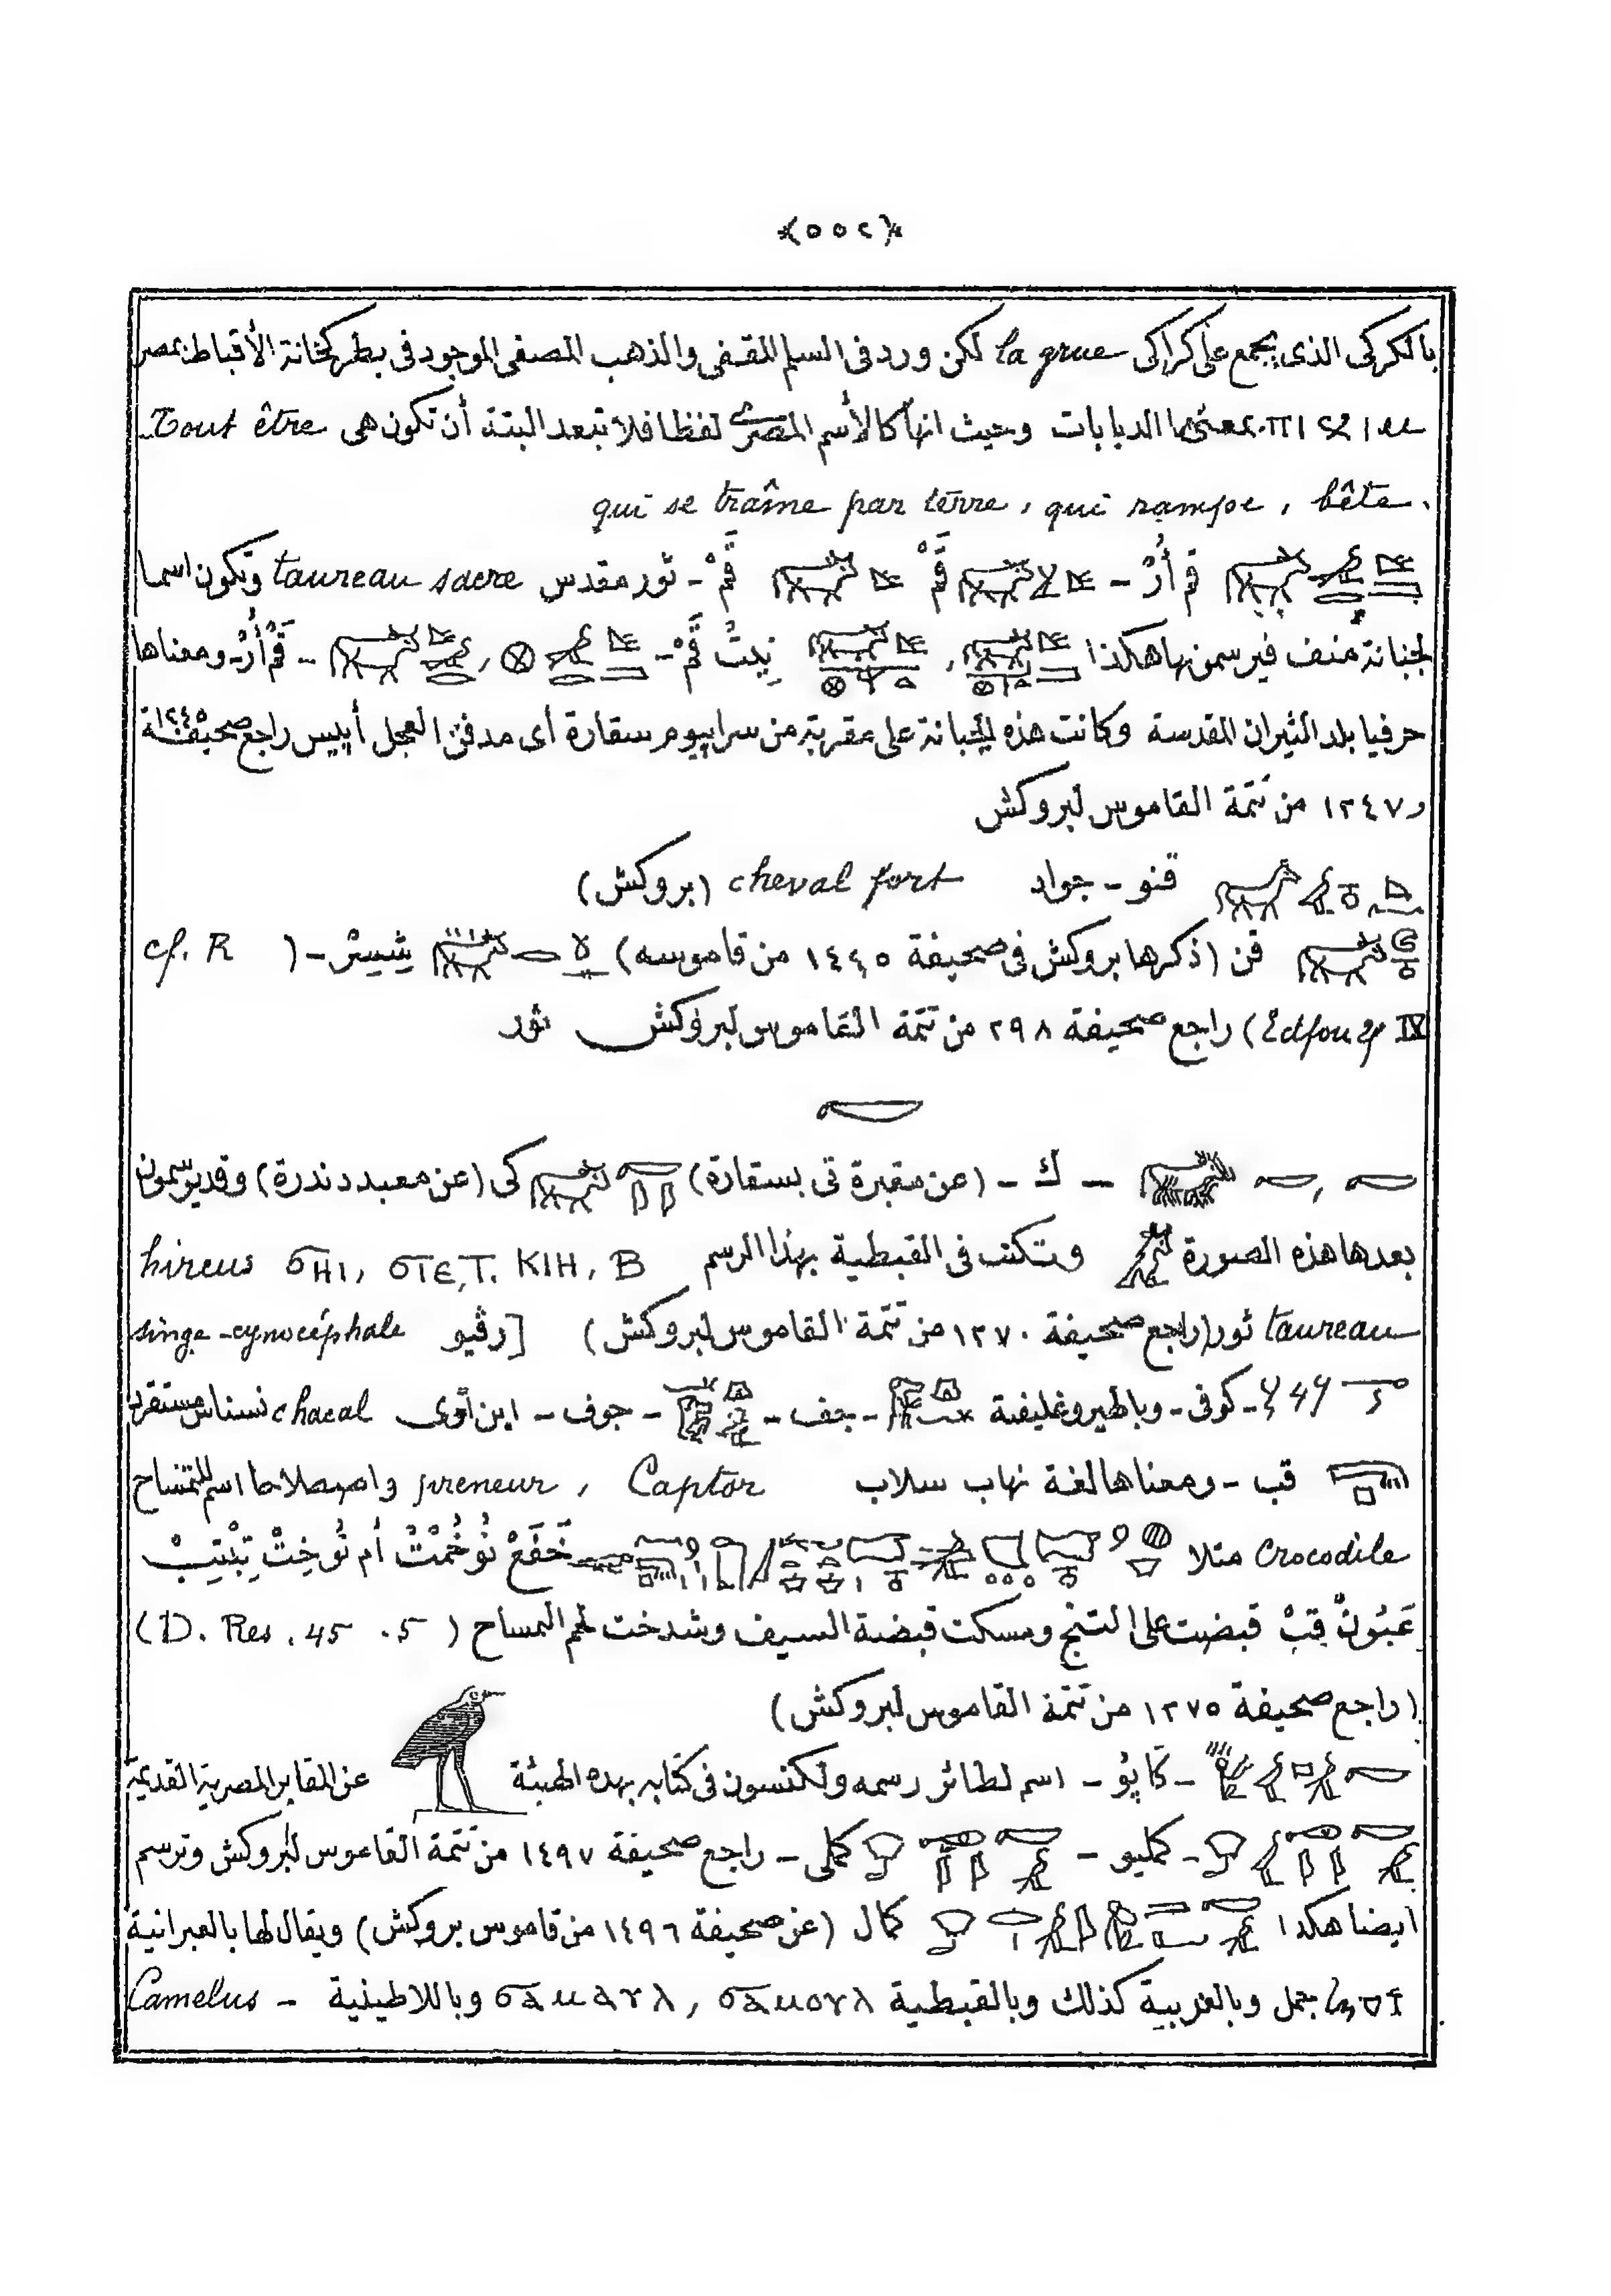 ﴿٥٥٢﴾
بالكركى الذى يجمع على كراكى la grue لكن ورد فى السلم المقفى والذهب المصفى الموجود فى بطركخانة الأقباط بمصر
الدبابات وحيث انها كالأسم المصرى لفظا فلا تبعد البتة أن تكون هى Tout être
qui se traîne par terre, qui rampe, bête.
قم أر - قم قم - ثور مقدس taureau sacre وتكون اسما
لجبانة منف فيرسمونها هكذا نيت قم - قم أر - ومعناها
حرفيا بلد الثيران المقدسة وكانت هذه الجبانة على مقربة من سرابيوم سقارة أى مدفن العجل أبيس راجع صحيفة ١٢٤٥
و ١٢٤٧ من تتمة القاموس لبروكش
قنو - جواد cheval fort (بروكش)
قن (ذكرها بروكش فى صحيفة ١٤٤٥ من قاموسه) شيسر - ( cf. R
Edfou IV) راجع صحيفة ٢٩٨ من تتمة القاموس لبروكش ثور
ك - (عن مقبرة تى بسقارة) كى (عن معبد دندرة) وقد يرسمون
بعدها هذه الصورة وتكتب فى القبطية بهذا الرسم ϭHI, ϭIE,T. KIH, B hircus
taureau ثور (راجع صحيفة ١٢٧٠ من تتمة القاموس لبروكش) [رفيو singe-cynocéphale
كوفى - وبالهيروغليفية - جف - جوف - ابن آوى chacal نسناس
قب - ومعناها لغة نهاب سلاب preneur, Captor واصطلاحا اسم للتمساح
Crocodile مثلا خفع نوخمت أم نوخت
قب قبضت على التنج ومسكت قبضة السيف وشدخت لحم التمساح (D. Res. 45 . 5)
(راجع صحيفة ١٢٧٥ من تتمة القاموس لبروكش)
كابو - اسم لطائر رسمه ولكنسون فى كتابه بهذه الهيئة عن المقابر المصرية القديمة
كمليو - كملى - راجع صحيفة ١٤٩٧ من تتمة القاموس لبروكش وترسم
ايضا هكذا كمال (عن صحيفة ١٤٩٦ من قاموس بروكش) ويقال لها بالعبرانية
جمل وبالعربية كذلك وبالقبطية ϭⲁⲙⲟⲩⲗ, ϭⲁⲙⲁⲩⲗ وباللاطينية - Camelus